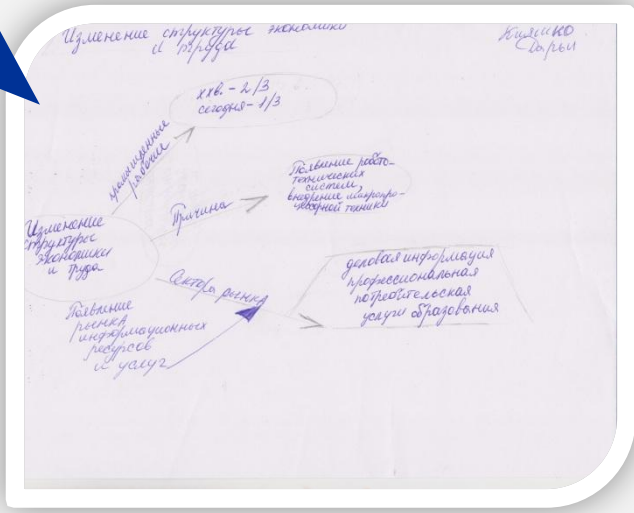 Изменение структуры экономики
и труда
Дарьи
промышленные
рабочие
XXв. - 2/3
сегодня - 1/3
Причина
Появление робото-
технических
систем,
внедрение микропро-
цессорной техники
Изменение
структуры
экономики
и труда
Сектора рынка
деловая информация
профессиональная
потребительская
услуги образования
Появление
рынка
информационных
ресурсов
и услуг